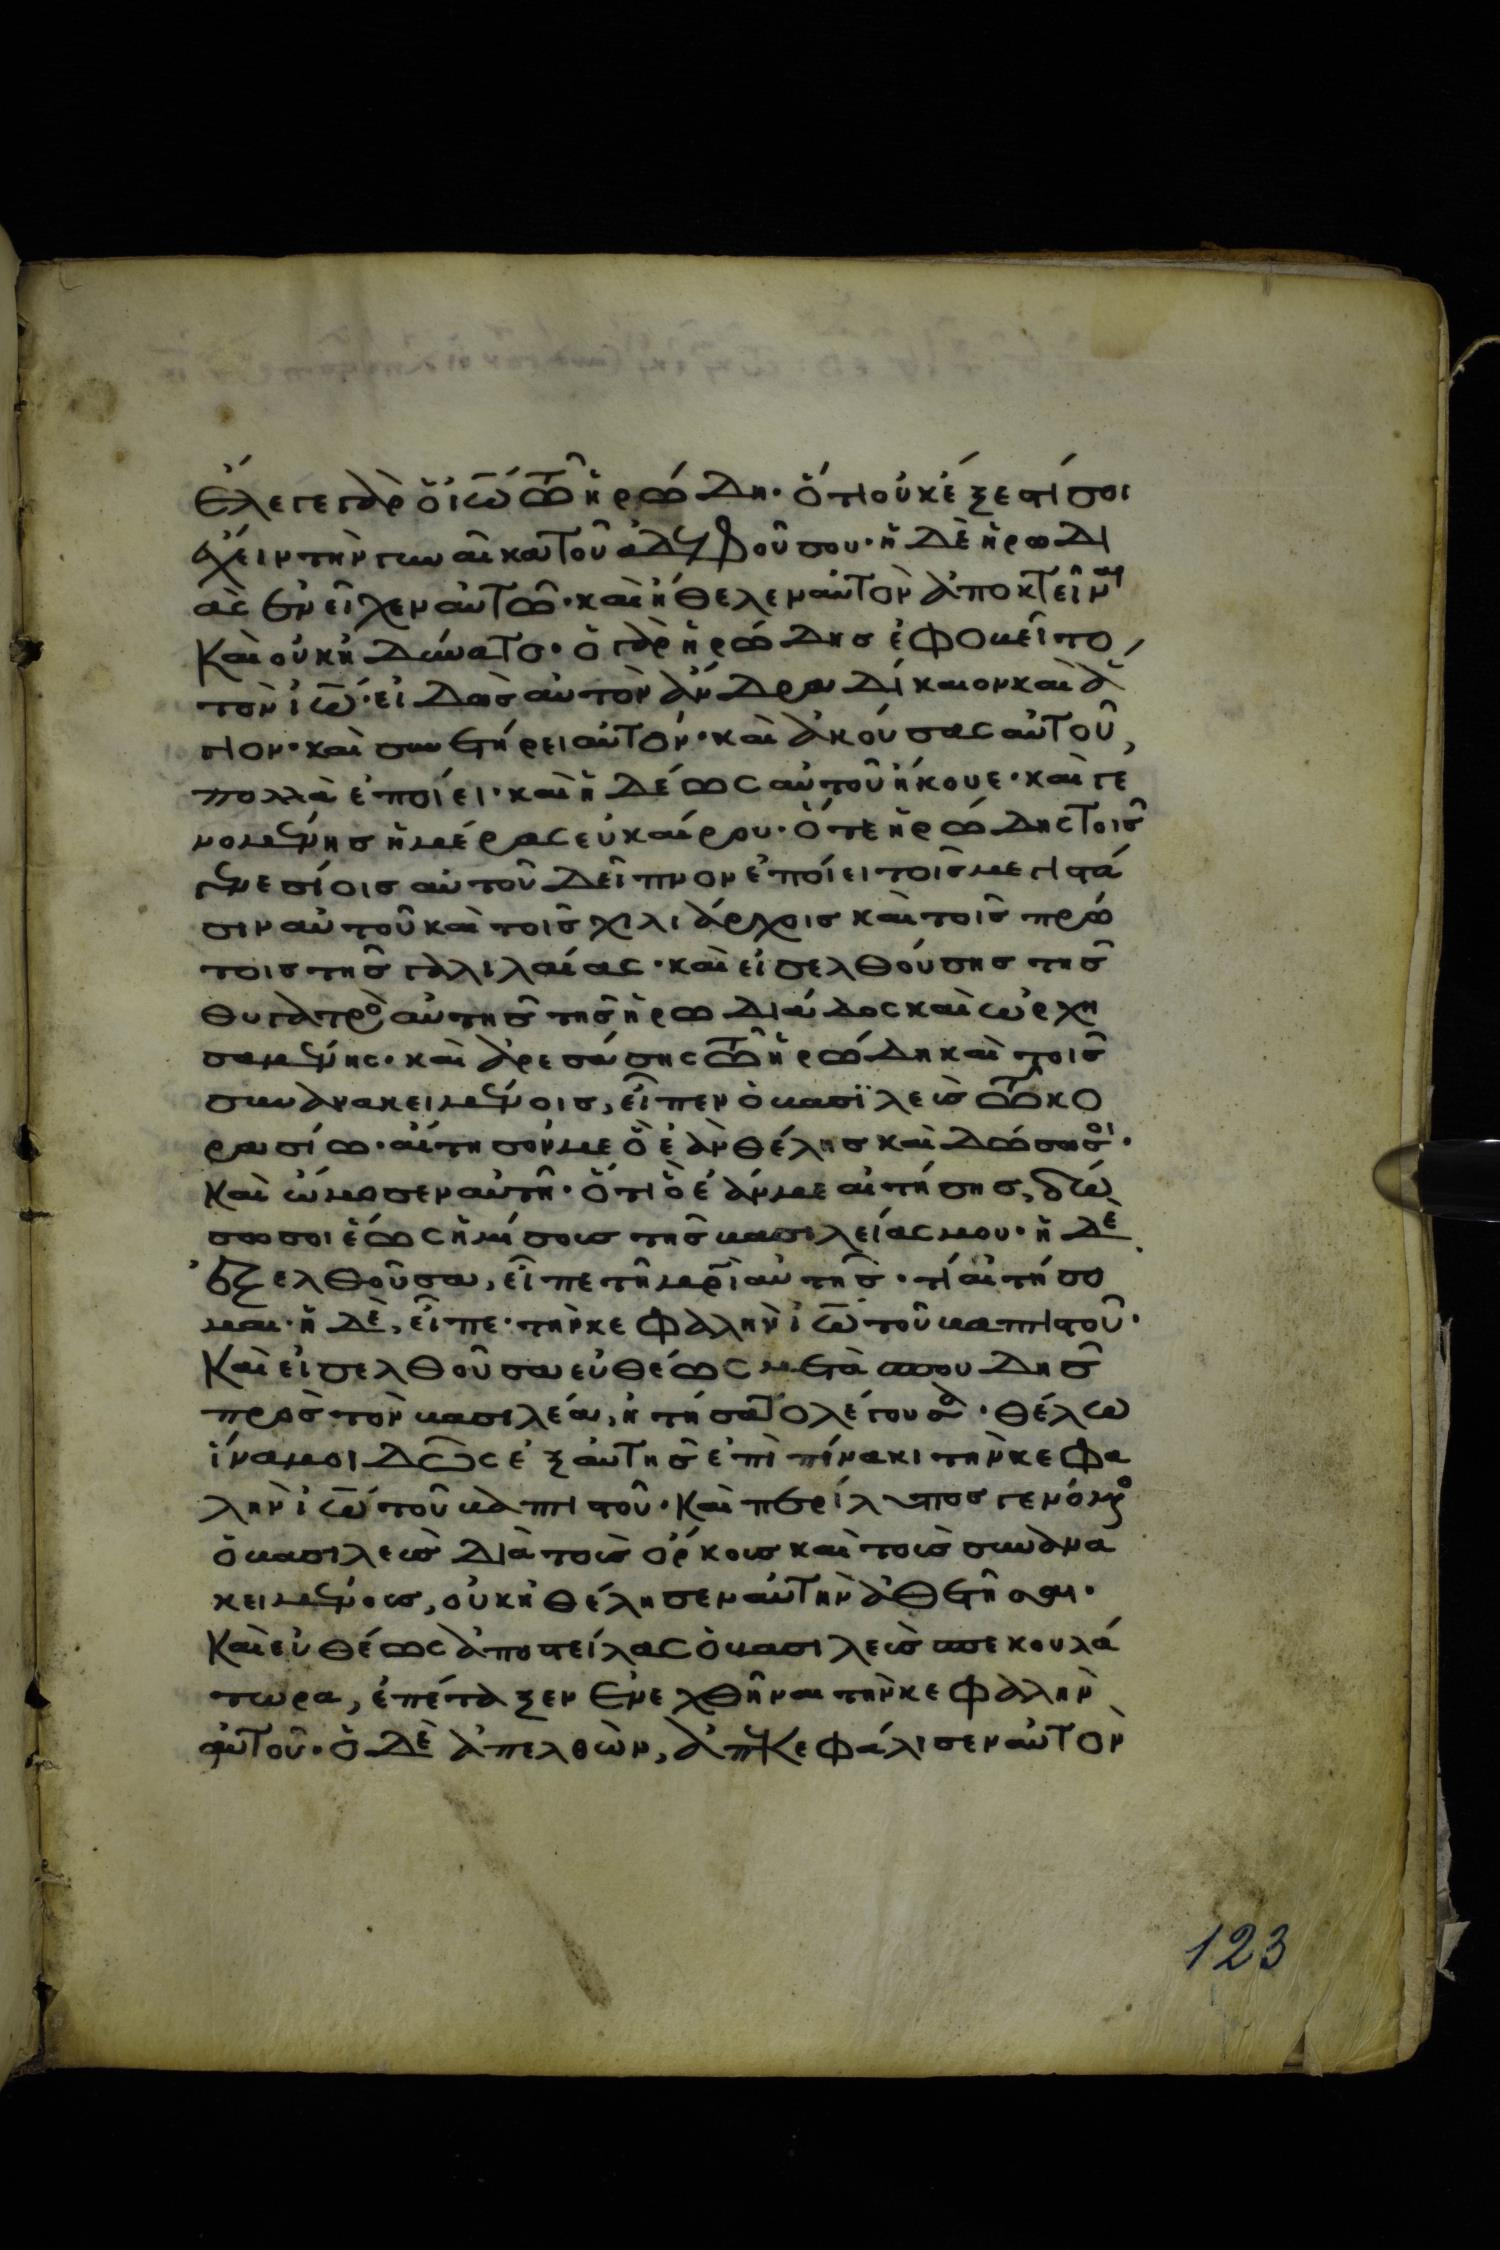 ἔλεγε γὰρ ὁ ἰω̅ τῶ ἡρώδη· ὅτι οὐκ ἔξεστί σοι
ἔχειν τὴν γυναῖκα τοῦ ἀδελφοῦ σου· ἡ δὲ ἡρωδι
ὰς ἐνεῖχεν αὐτῶ· καὶ ἤθελεν αὐτὸν ἀποκτεῖναι
καὶ οὐκ ἠδύνατο· ὁ γὰρ ἡρώδης ἐφοβεῖτο,
τὸν ἰω̅· εἰδὼς αὐτὸν ἄνδρα δίκαιον καὶ ἅ
γιον· καὶ συνετήρει αὐτόν· καὶ ἀκούσας αὐτοῦ,
πολλὰ ἐποίει· καὶ ἡδέως αὐτοῦ ἤκουε· καὶ γε
νομένης ἡμέρας εὐκαίρου· ὅτε ἡρώδης τοῖς
γενεσίοις αὐτοῦ δεῖπνον ἐποίει τοῖς μεγιστά
σιν αὐτοῦ καὶ τοῖς χιλιάρχοις καὶ τοῖς πρώ
τοις τῆς γαλιλαίας· καὶ εἰσελθούσης τῆς
θυγατρὸ αὐτῆς τῆς ἡρωδιάδος καὶ ὠρχη
σαμένης· καὶ ἀρεσάσης τῶ ἡρώδη καὶ τοῖς
συνανακειμένοις, εἶπεν ὁ βασϊλεὺς τῶ κο
ρασίω· αἴτησόν με ὃ ἐὰν θέλης καὶ δώσω σοί·
καὶ ὤμοσεν αὐτῆ· ὅτι ὃ ἐάν με αἰτήσης, δώ
σω σοι ἕως ἡμίσους τῆς βασιλείας μου· ἡ δὲ
ἐξελθοῦσα, εἶπε τῆ μρ̅ὶ αὐτῆς· τί αἰτήσο
μαι· ἡ δὲ, εἶπε· τὴν κεφαλὴν ἰω̅ τοῦ βαπτιστοῦ·
καὶ εἰσελθοῦσα εὐθέως μετὰ σπουδῆς
πρὸς τὸν βασιλέα, ἠτήσατο λέγουσα· θέλω
ἵνα μοι δῶς ἐξ αὐτῆς ἐπὶ πίνακι τὴν κεφα
λὴν ἰω̅ τοῦ βαπτιστοῦ· καὶ περίλυπος γενόμενο
ὁ βασιλεὺς διὰ τοὺς ὅρκους καὶ τοὺς συνανα
κειμένους, οὐκ ἠθέλησεν αὐτὴν ἀθετῆσαι·
καὶ εὐθέως ἀποστείλας ὁ βασιλεὺς σπεκουλά
τωρα, ἐπέταξεν ἐνεχθῆναι τὴν κεφαλὴν
αὐτοῦ· ὁ δὲ ἀπελθὼν, ἀπεκεφάλισεν αὐτὸν
123